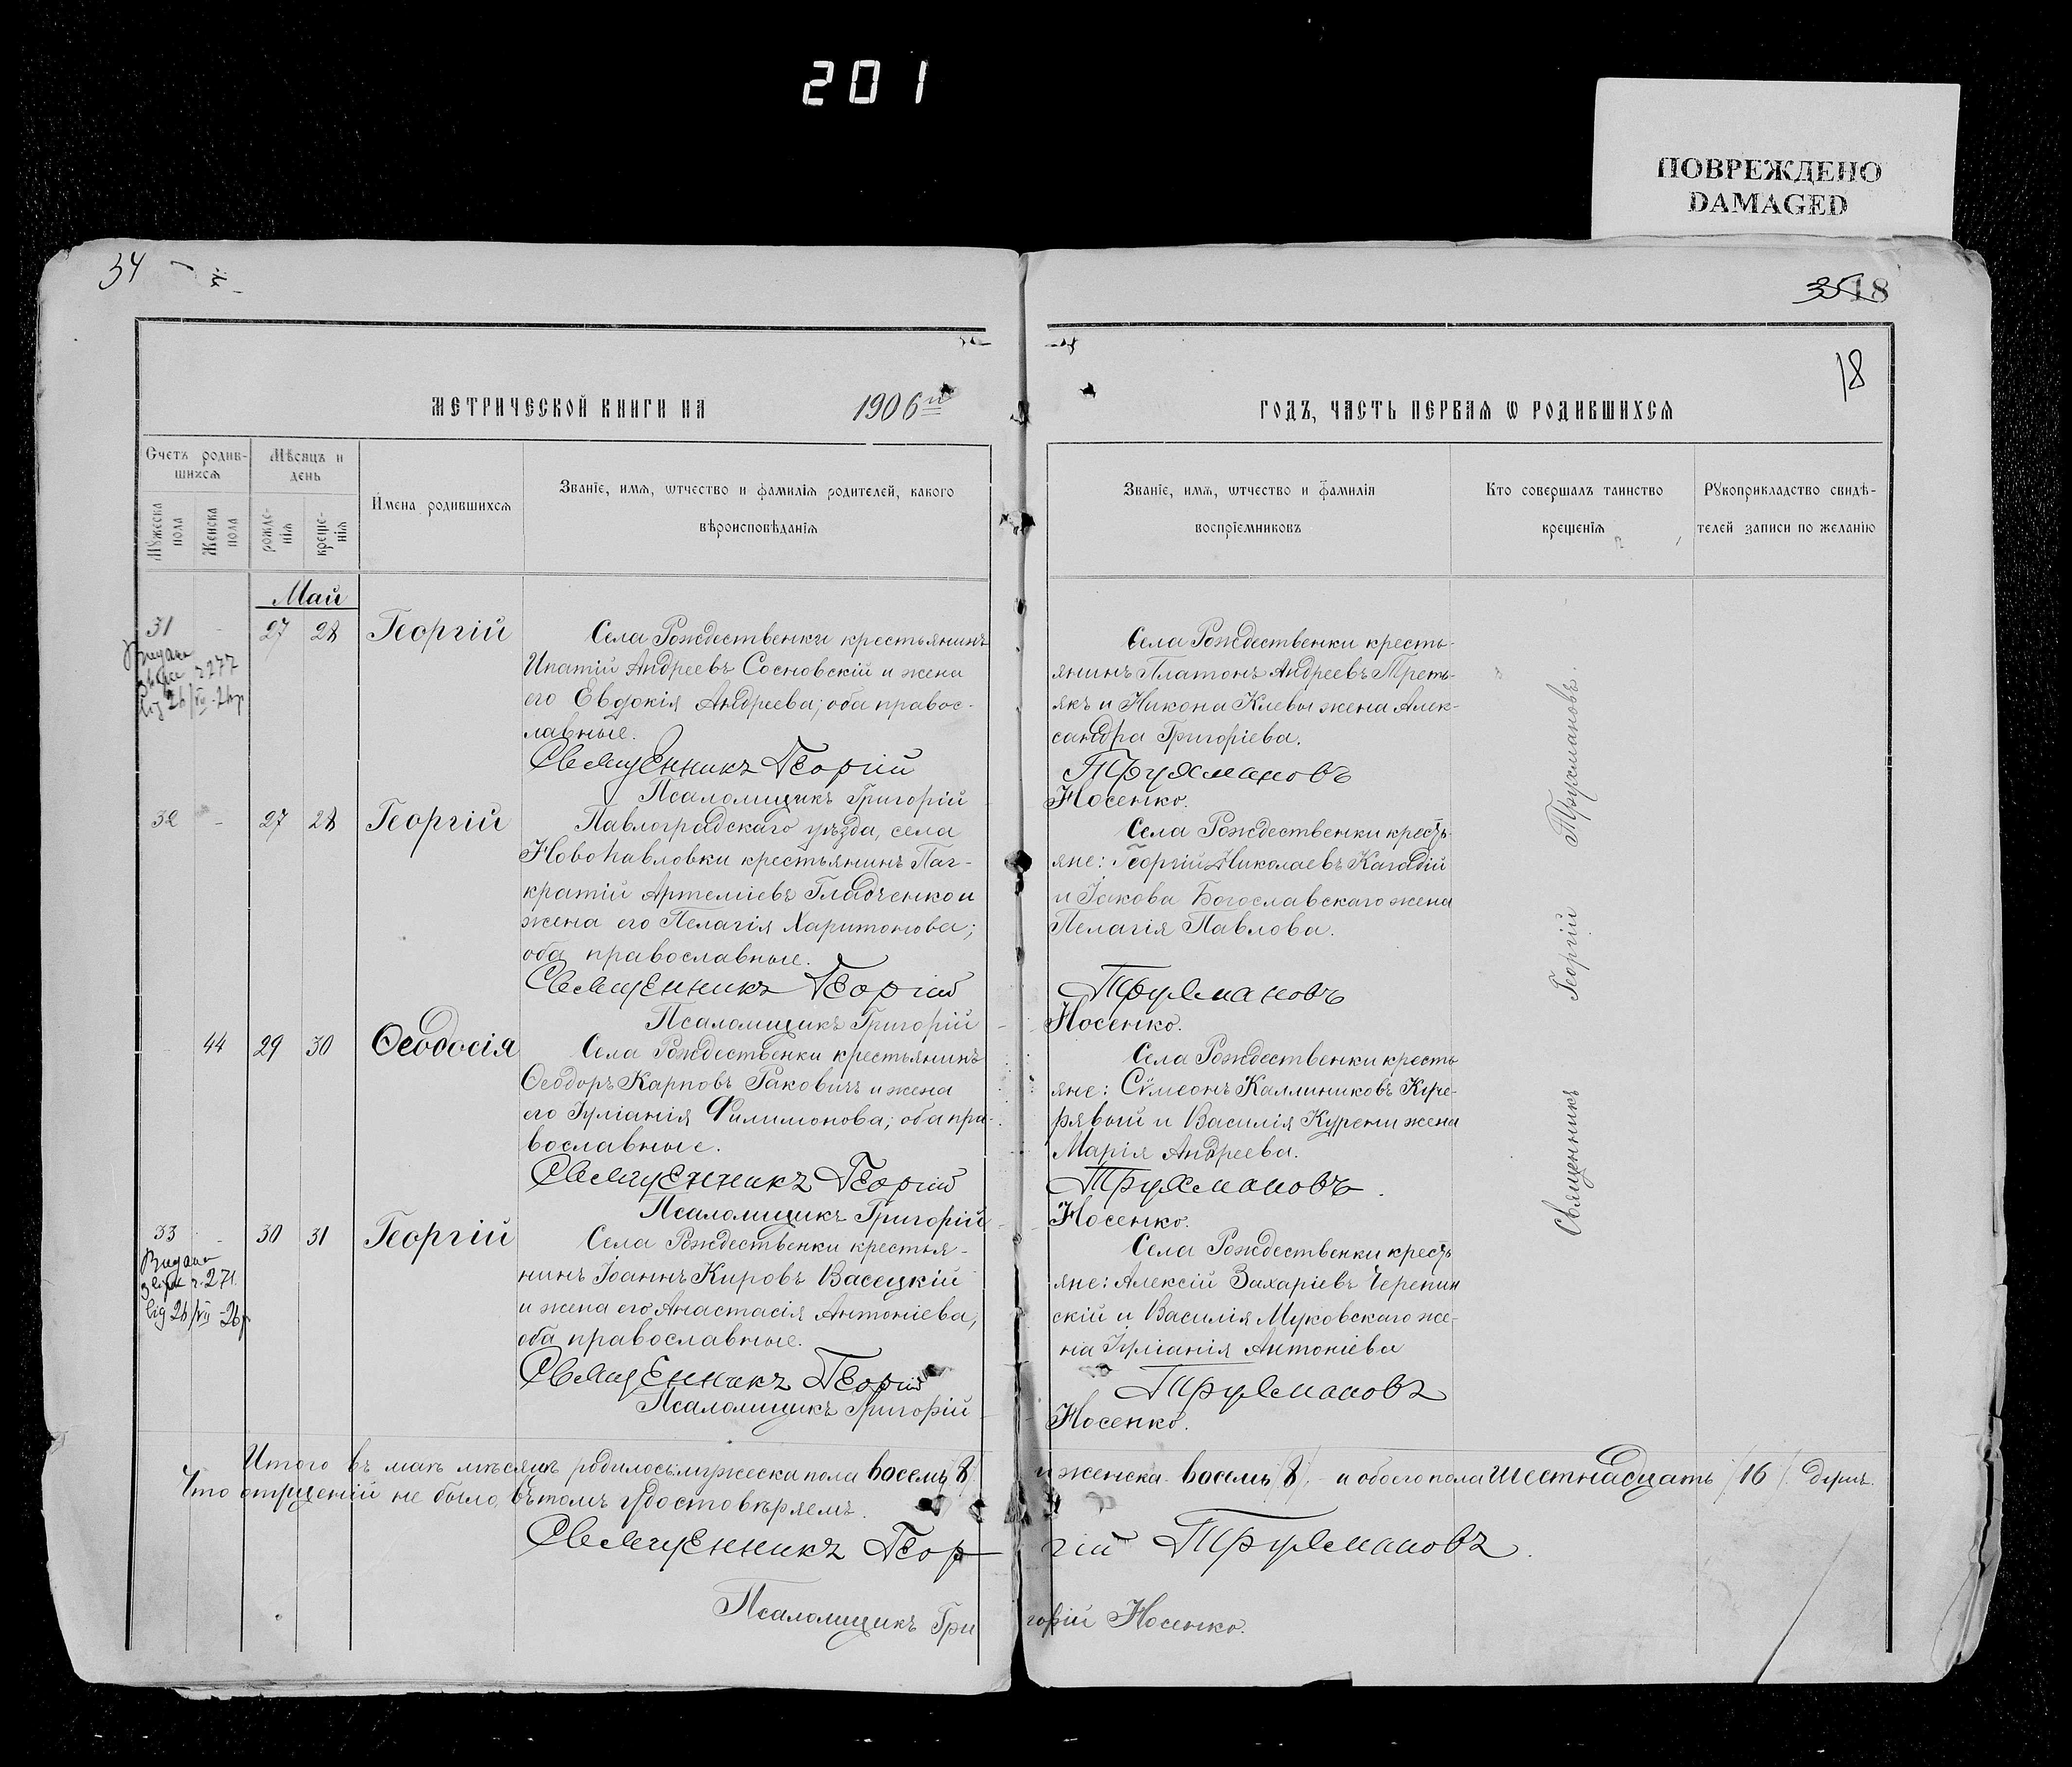 201
ПОВРЕЖДЕНО
DAMAGED
34
35 18
18
МЕТРИЧЕСКОЙ КНИГИ НА 1906й
ГОДЪ, ЧАСТЬ ПЕРВАЯ Ѡ РОДИВШИХСЯ
Счетъ родив-
шихся
Мужеска пола
Женска пола
Мѣсяцъ и
день
рожде-
нія
креще-
нія
Имена родившихся
Званіе, имя, ѿчество и фамилія родителей, какого
вѣроисповѣданія
Званіе, имя, ѿчество и фамилія
воспріемниковъ
Кто совершалъ таинство
крещенія
Рукоприкладство свидѣ-
телей записи по желанію
Май
31 - 27 28 Георгій
Села Рождественки крестьянинъ
Ипатій Андреевъ Сосновскій и жена
его Евдокія Андреева; оба правос-
лавные.
Священникъ Георгій
Псаломщикъ Григорій
Села Рождественки кресть-
янинъ Платонъ Андреевъ Треть-
якъ и Никона Клевы жена Алек-
сандра Григоріева.
Трухмановъ
Носенко.
32 - 27 28 Георгій
Павлоградскаго уѣзда, села
Новопавловки крестьянинъ Пан-
кратій Артеміевъ Гладченко и
жена его Пелагія Харитонова;
оба православные.
Священникъ Георгій
Псаломщикъ Григорій
Села Рождественки кресть-
яне: Георгій Николаевъ Кагадій
и Іакова Богославскаго жена
Пелагія Павлова.
Трухмановъ
Носенко.
44 29 30 Ѳеодосія
Села Рождественки крестьянинъ
Ѳеодоръ Карповъ Раковичъ и жена
его Іуліанія Филимонова; оба пра-
вославные.
Священникъ Георгій
Псаломщикъ Григорій
Села Рождественки кресть
яне: Сѵмеонъ Каллиниковъ Куче-
рявый и Василія Курени жена
Марія Андреева.
Трухмановъ.
Носенко.
33 - 30 31 Георгій
Села Рождественки крестья-
нинъ Іоаннъ Кировъ Васецкій
и жена его Анастасія Антоніева,
оба православные.
Священникъ Георгій
Псаломщикъ Григорій
Села Рождественки кресть
яне: Алексій Захаріевъ Черепин
скій и Василія Муковскаго же-
на Іуліанія Антоніева
Трухмановъ
Носенко.
Священникъ Георгій Трухмановъ.
Итого въ маѣ мѣсяцѣ родилось: мужеска пола восемь /8/ и женска восемь /8/, - и обоего пола шестнадцать /16/ душъ.
Что опущеній не было, въ томъ удостовѣряемъ.
Священникъ Георгій Трухмановъ.
Псаломщикъ Григорій Носенко.